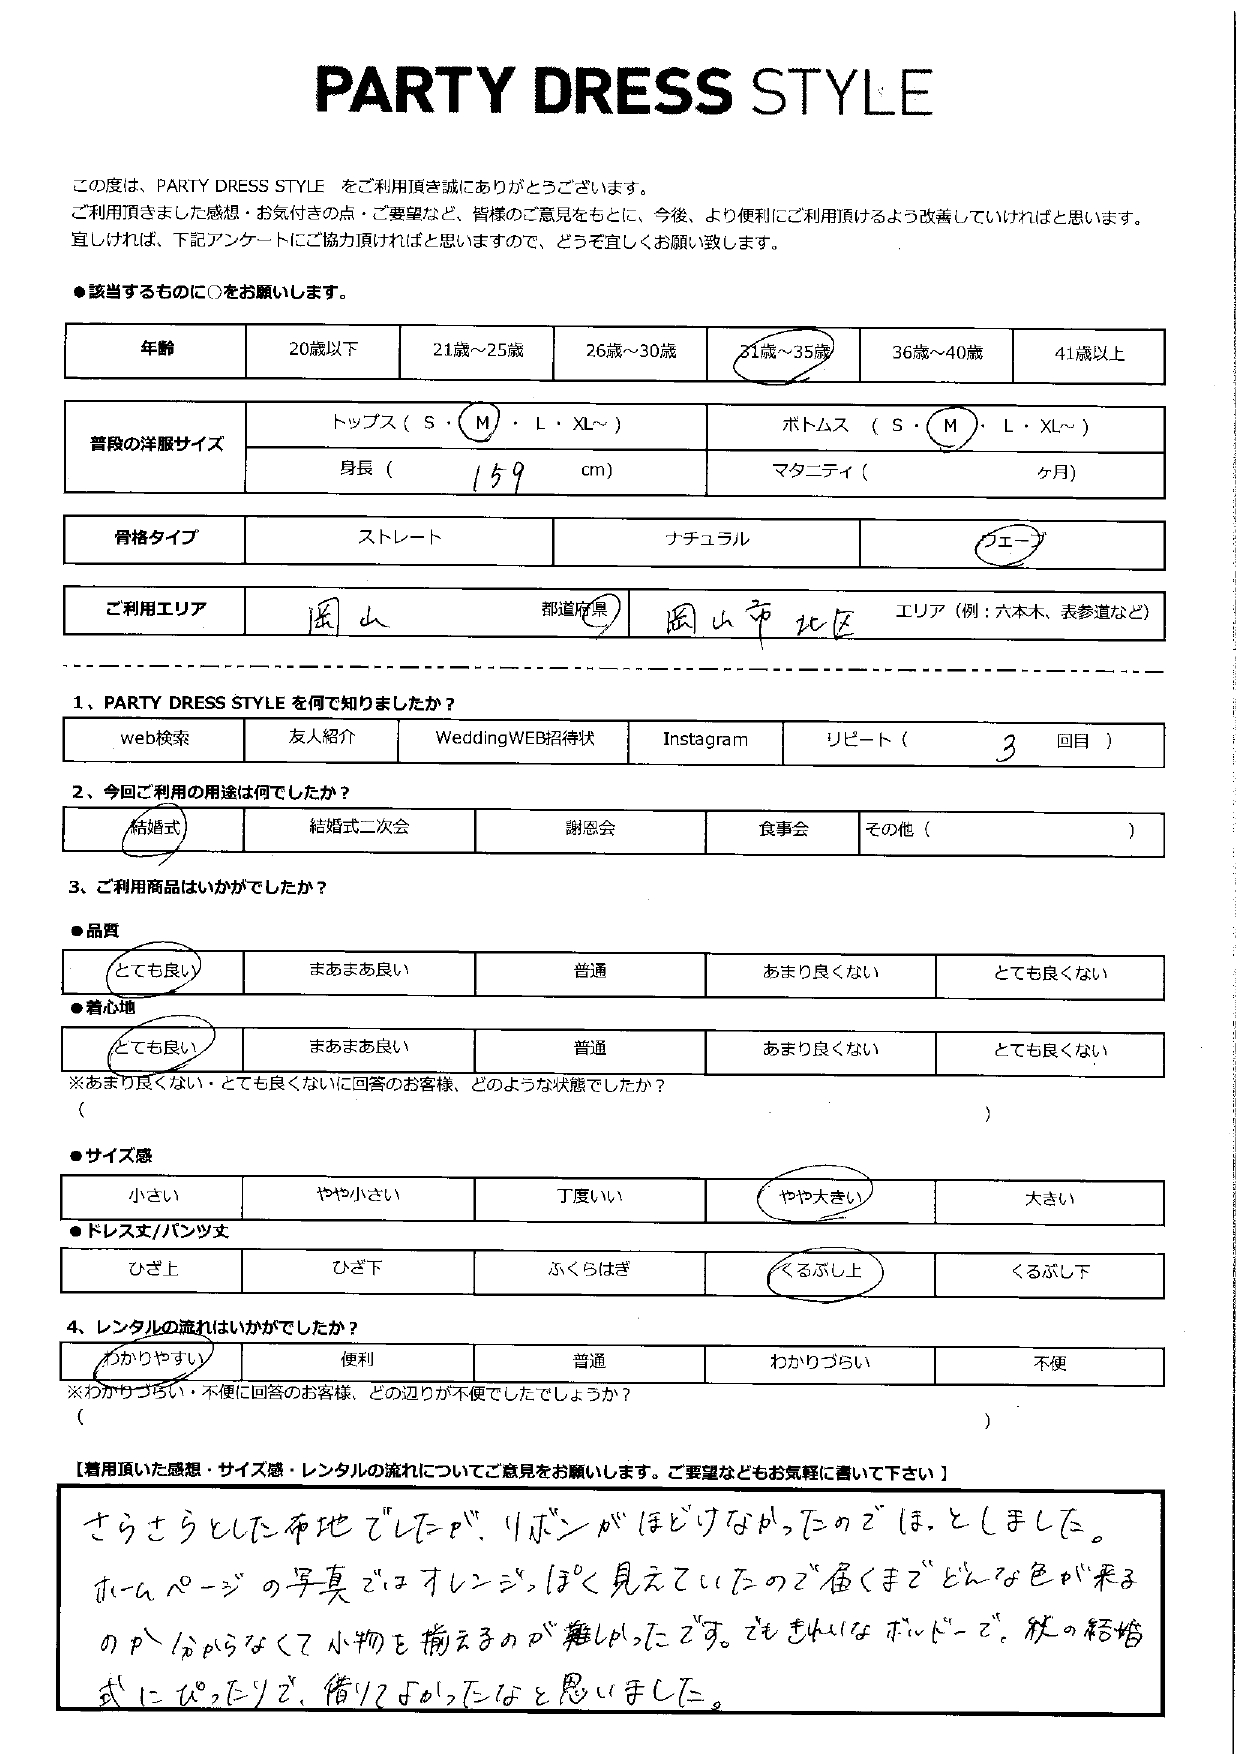 PARTY DRESS STYLE
この度は、PARTY DRESS STYLE をご利用頂き誠にありがとうございます。
ご利用頂きました感想・お気付きの点・ご要望など、皆様のご意見をもとに、今後、より便利にご利用頂けるよう改善していければと思います。
宜しければ、下記アンケートにご協力頂ければと思いますので、どうぞ宜しくお願い致します。
●該当するものに○をお願いします。
年齢 20歳以下 21歳～25歳 26歳～30歳 31歳～35歳 36歳～40歳 41歳以上
普段の洋服サイズ トップス ( S ・ M ・ L ・ XL～ ) ボトムス ( S ・ M ・ L ・ XL～ )
身長 ( 159 cm) マタニティ ( ヶ月)
骨格タイプ ストレート ナチュラル ウェーブ
ご利用エリア 岡山 都道府県 岡山市北区 エリア (例：六本木、表参道など)
1、PARTY DRESS STYLE を何で知りましたか？
web検索 友人紹介 WeddingWEB招待状 Instagram リピート ( 3 回目 )
2、今回ご利用の用途は何でしたか？
結婚式 結婚式二次会 謝恩会 食事会 その他 ( )
3、ご利用商品はいかがでしたか？
●品質
とても良い まあまあ良い 普通 あまり良くない とても良くない
●着心地
とても良い まあまあ良い 普通 あまり良くない とても良くない
※あまり良くない・とても良くないに回答のお客様、どのような状態でしたか？
( )
●サイズ感
小さい やや小さい 丁度いい やや大きい 大きい
●ドレス丈/パンツ丈
ひざ上 ひざ下 ふくらはぎ くるぶし上 くるぶし下
4、レンタルの流れはいかがでしたか？
わかりやすい 便利 普通 わかりづらい 不便
※わかりづらい・不便に回答のお客様、どの辺りが不便でしたでしょうか？
( )
【着用頂いた感想・サイズ感・レンタルの流れについてご意見をお願いします。ご要望などもお気軽に書いて下さい 】
さらさらとした布地でしたが、リボンがほどけなかったのでほっとしました。
ホームページの写真ではオレンジっぽく見えていたので届くまでどんな色が来る
のか分からなくて小物を揃えるのが難しかったです。でもきれいなボルドーで、秋の結婚
式にぴったりで、借りてよかったなと思いました。